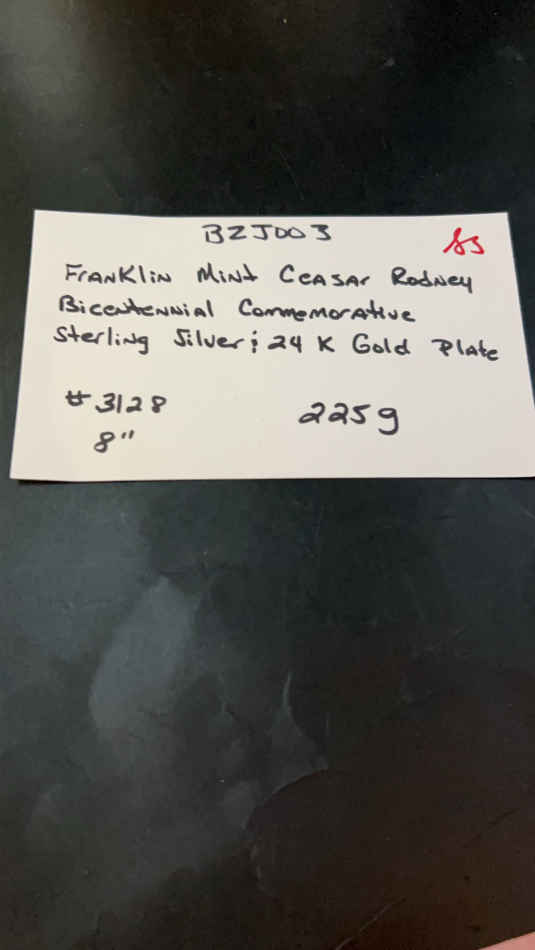 BZJ003
SS
Franklin Mint Ceasar Rodney
Bicentennial Commemorative
Sterling Silver & 24 K Gold Plate
#3128
225g
8"